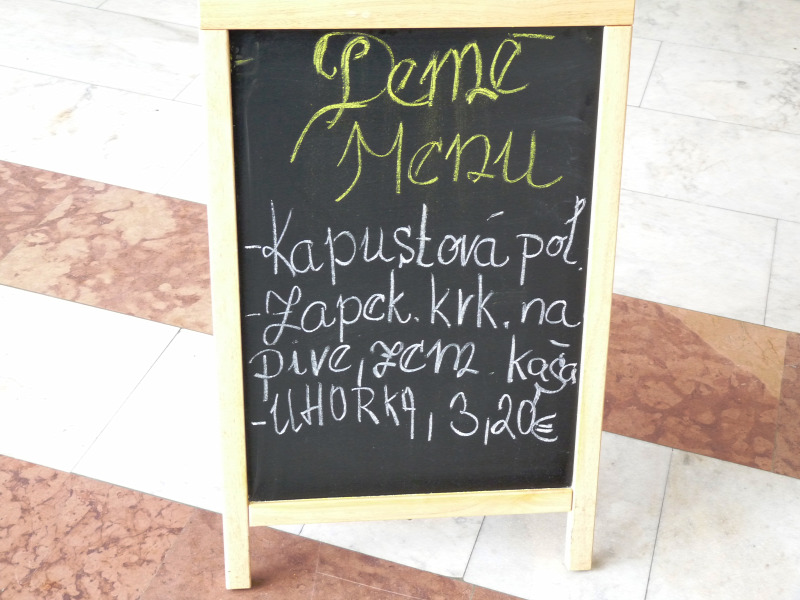 Demē
Menu
-Kapustová pol.
-Zapek. krk. na
pive, zem. kaša
-UHORKA, 3,20€